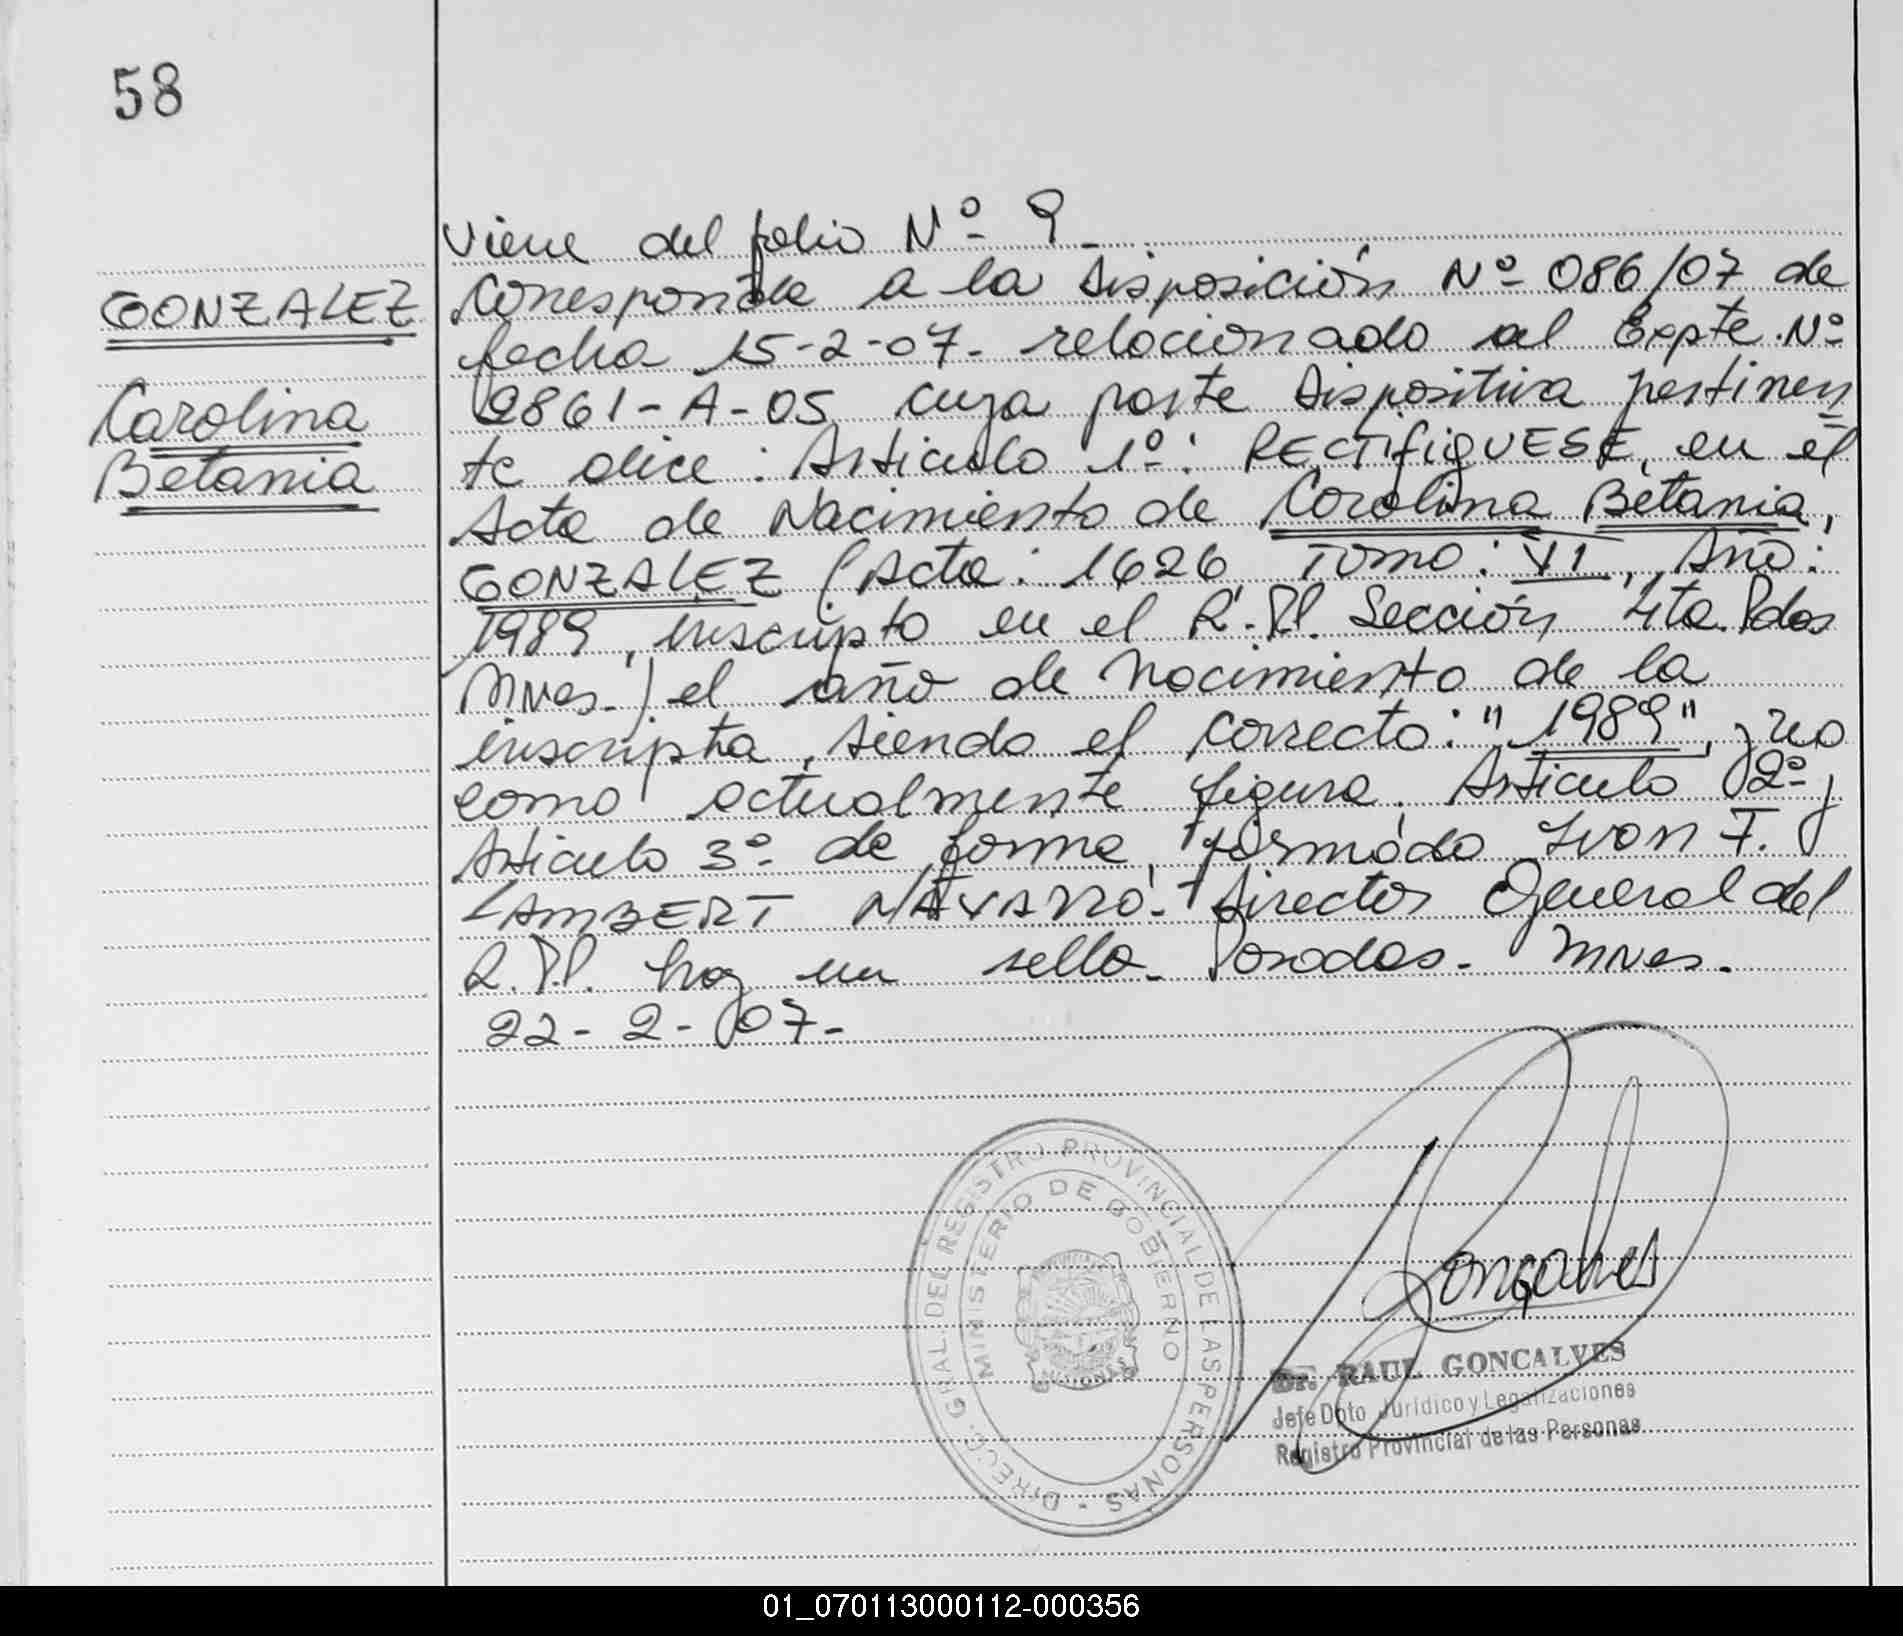 58
GONZALEZ
Carolina
Betania
Viene del folio Nº 9.
Corresponde a la disposición Nº 086/07 de
fecha 15-2-07. relacionado al Expte. Nº
2861-A-05 cuya parte dispositiva pertinen
te dice: Articulo 1º: RECTIFIQUESE, en el
Acta de Nacimiento de Carolina Betania,
GONZALEZ (Acta: 1626 Tomo: VI, Año:
1989, inscripta en el R.P.P. Sección 4ta. Pdas
Mnes.) el año de nacimiento de la
inscripta, siendo el correcto: "1989", y no
como actualmente figura. Articulo 2º y
Articulo 3º de forma, firmado Ivon F.
LAMBERT NAVARRO.- Director General del
R.P.P. hay un sello. Posadas. Mnes.
22-2-07-
DIRECC. GRAL. DEL REGISTRO PROVINCIAL DE LAS PERSONAS -
MINISTERIO DE GOBIERNO
MISIONES
Goncalves
Dr. RAUL GONCALVES
Jefe Dpto Jurídico y Legalizaciones
Registro Provincial de las Personas
01_070113000112-000356